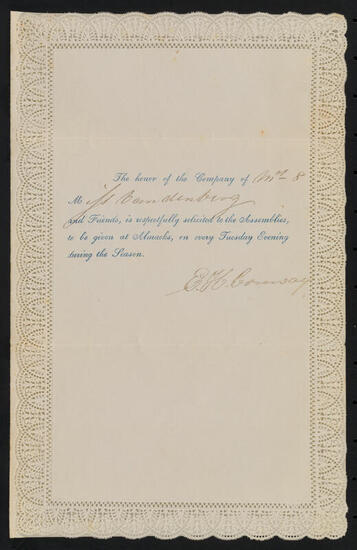 The honor of the Company of Mr &
Miss Vandenberg
and Friends, is respectfully solicited to the Assemblies,
to be given at Almacks, on every Tuesday Evening
during the Season.
E. H. Conway